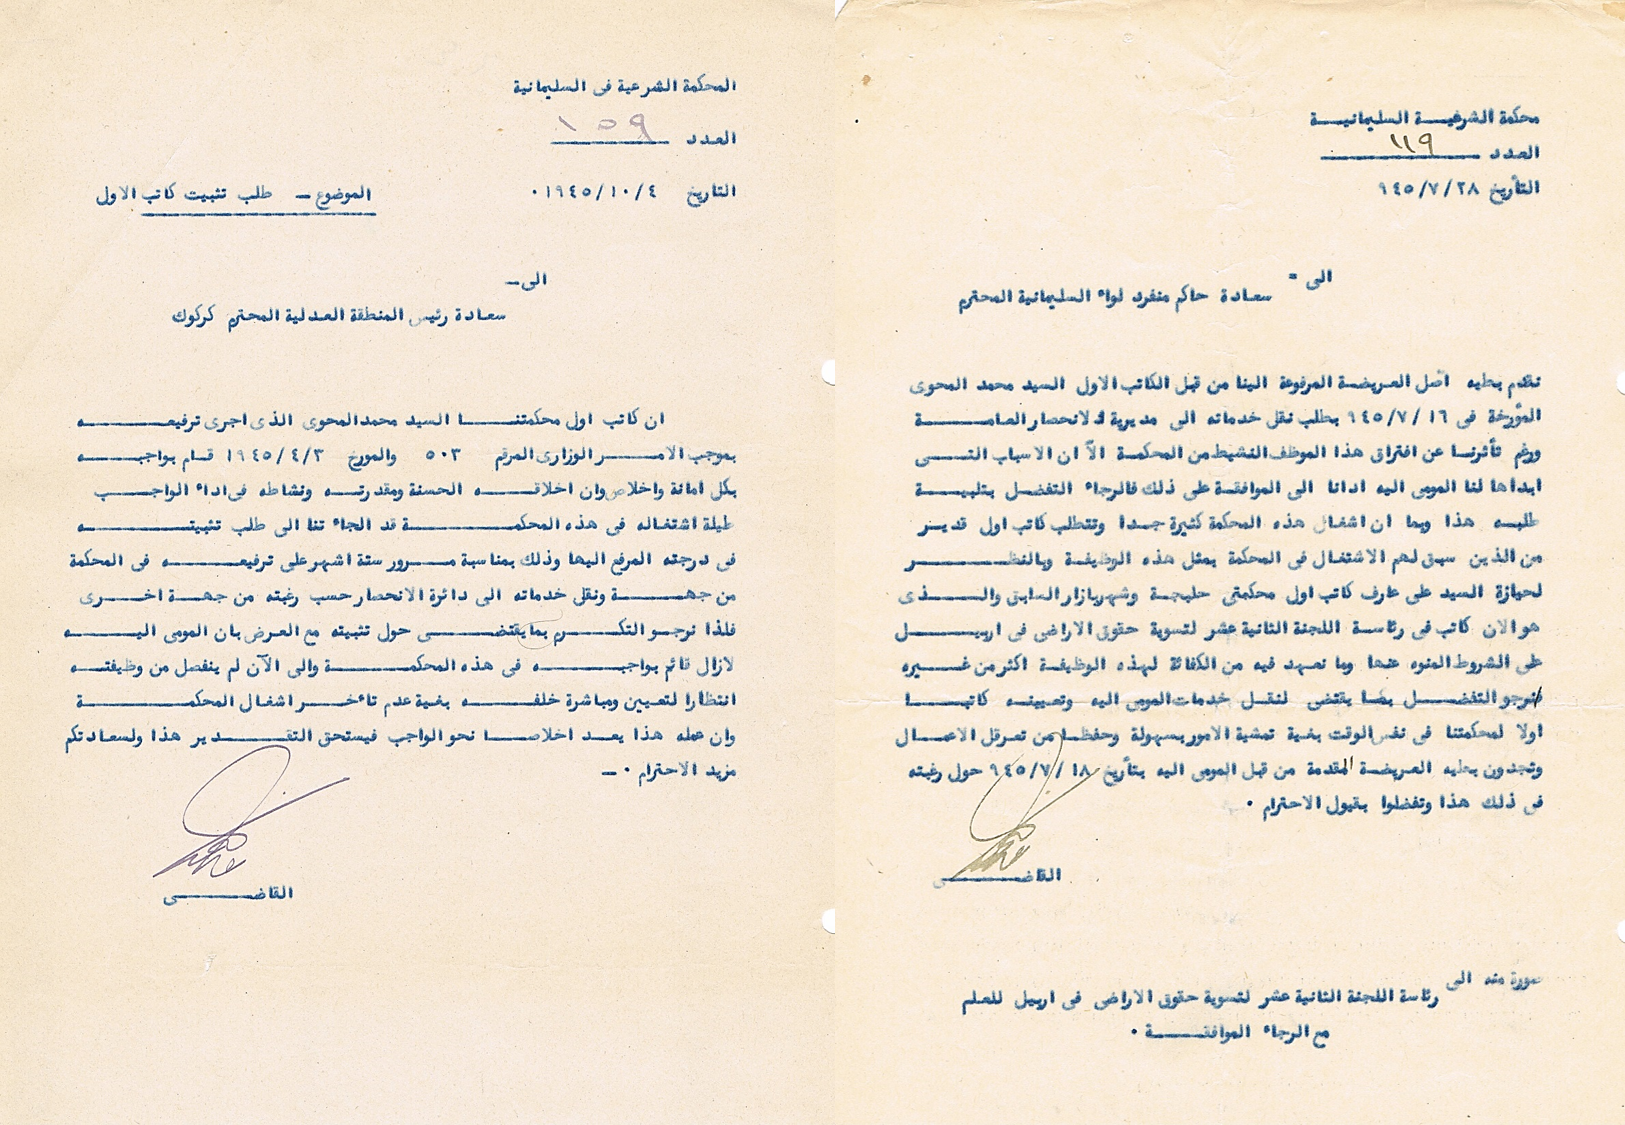 محكمة الشرعية السليمانية
العدد ١١٩
التأريخ ٩٤٥/٧/٢٨
الى =
سعادة حاكم منفرد لواء السليمانية المحترم
نقدم بطيه اصل العريضة المرفوعة الينا من قبل الكاتب الاول السيد محمد المحوى
المؤرخة فى ٩٤٥/٧/١٦ بطلب نقل خدماته الى مديرية الانحصار العامة
ورغم تأثرنا عن افتراق هذا الموظف النشيط من المحكمة الاّ ان الاسباب التى
ابداها لنا المومى اليه ادانا الى الموافقة على ذلك فالرجاء التفضل بتلبية
طلبه هذا وبما ان اشغال هذه المحكمة كثيرة جدا وتتطلب كاتب اول قدير
من الذين سبق لهم الاشتغال فى المحكمة بمثل هذه الوظيفة وبالنظر
لحيازة السيد على عارف كاتب اول محكمتى حلبجة وشهربازار السابق والذى
هو الان كاتب فى رئاسة اللجنة الثانية عشر لتسوية حقوق الاراضى فى اربيل
على الشروط المنوه عنها وما نعهد فيه من الكفائة لهذه الوظيفة اكثر من غيره
نرجو التفضل بما يقتضى لنقل خدمات المومى اليه وتعيينه كاتبا
اولا لمحكمتنا فى نفس الوقت بغية تمشية الامور بسهولة وحفظا من تعرقل الاعمال
وتجدون بطيه العريضة المقدمة من قبل المومى اليه بتأريخ ٩٤٥/٧/١٨ حول رغبته
فى ذلك هذا وتفضلوا بقبول الاحترام ٠
القاضى
صورة منه الى
رئاسة اللجنة الثانية عشر لتسوية حقوق الاراضى فى اربيل للعلم
مع الرجاء الموافقة ٠
المحكمة الشرعية فى السليمانية
العدد ١٥٩
التاريخ ١٩٤٥/١٠/٤ ٠
الموضوع ـ طلب تثبيت كاتب الاول
الى ـ
سعادة رئيس المنطقة العدلية المحترم كركوك
ان كاتب اول محكمتنا السيد محمد المحوى الذى اجرى ترفيعه
بموجب الامر الوزارى المرقم ٥٠٣ والمورخ ١٩٤٥/٤/٣ قام بواجبه
بكل امانة واخلاص وان اخلاقه الحسنة ومقدرته ونشاطه فى اداء الواجب
طيلة اشتغاله فى هذه المحكمة قد الجاء تنا الى طلب تثبيته
فى درجته المرفع اليها وذلك بمناسبة مرور ستة اشهر على ترفيعه فى المحكمة
من جهة ونقل خدماته الى دائرة الانحصار حسب رغبته من جهة اخرى
فلذا نرجو التكرم بما يقتضى حول تثبيته مع العرض بان المومى اليه
لازال قائم بواجبه فى هذه المحكمة والى الآن لم ينفصل من وظيفته
انتظارا لتعيين ومباشرة خلفه بغية عدم تاءخر اشغال المحكمة
وان عمله هذا يعد اخلاصا نحو الواجب فيستحق التقدير هذا ولسعادتكم
مزيد الاحترام ٠ ـ
القاضى